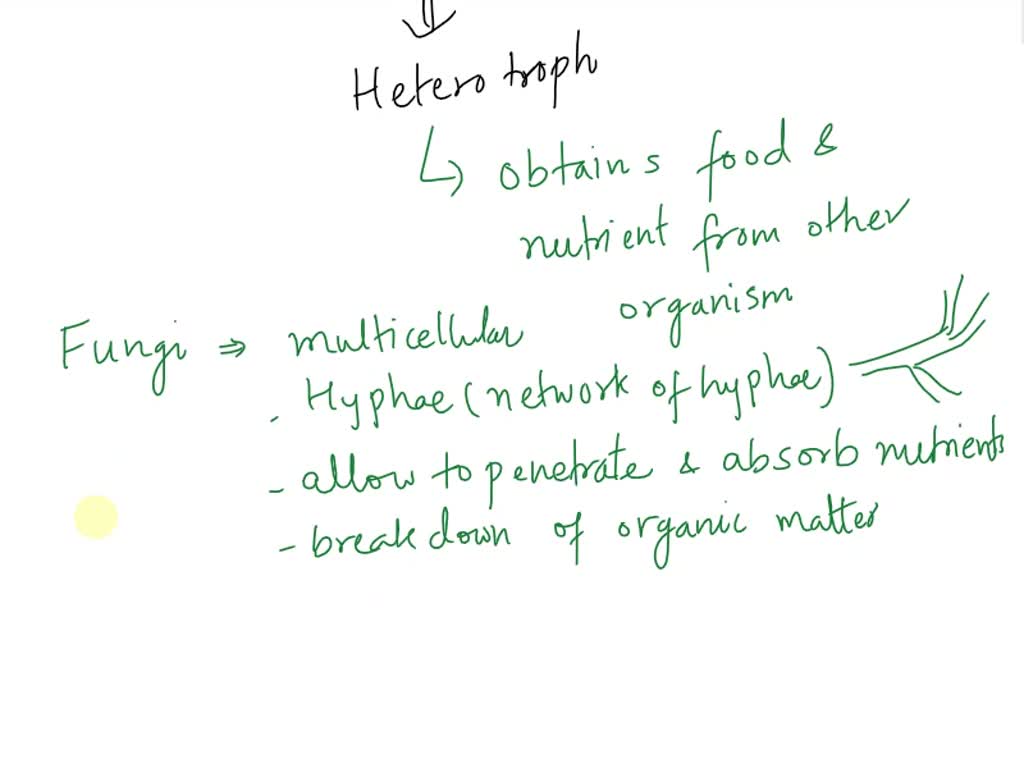 Heterotroph
↳ obtains food &
nutrient from other
organism
Fungi ⇒ multicellular
. Hyphae (network of hyphae)
- allow to penetrate & absorb nutrients
- breakdown of organic matter